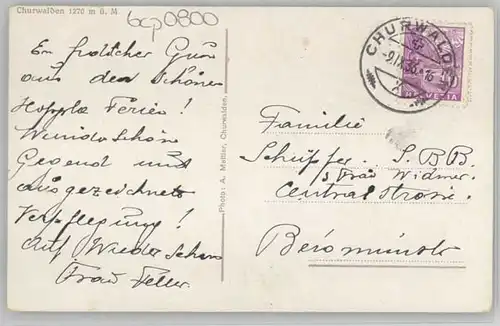 Churwalden 1270 m ü. M.
bcp0800
Ein froher Gruss
aus den schönen
Hoppla Ferien!
Wunderschön
Gegend und
ausgezeichnete
Verpflegung!
Auf Wiedersehen
Frau Feller
Photo: A. Mettler, Churwalden.
CHURWALD
HELVETIA
Familie
S.B.B.
Frau Widmer
Centralstrasse
Beromünster